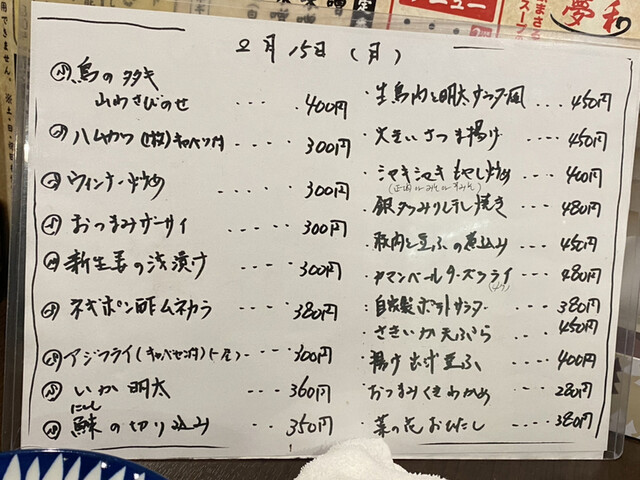 2月15日(月)
鳥のタタキ
山わさびのせ ････ 400円
ハムカツ(2枚)キャベツ付 ･･･ 300円
ウィンナー炒め ････ 300円
おつまみザーサイ ････ 300円
新生姜の浅漬け ････ 300円
ネギポン酢ムネカラ ････ 380円
アジフライ(キャベツ付)(一尾) ･･･ 300円
いか明太 ･･･ 360円
にしん
鰊の切り込み ････ 350円
生鳥肉と明太サラダ風 ･･･ 450円
大きいさつま揚げ ････ 450円
シャキシャキもやし炒め ････ 400円
銀ダラみりん干し焼き ･･･ 480円
豚肉と豆ふの煮込み ･･･ 450円
カマンベールチーズフライ ･･･ 480円
自家製ポテトサラダー ････ 380円
さきいか天ぷら ････ 450円
揚げ出汁豆ふ ････ 400円
おつまみくきわかめ ････ 280円
菜の花おひたし ････ 380円
メニュー